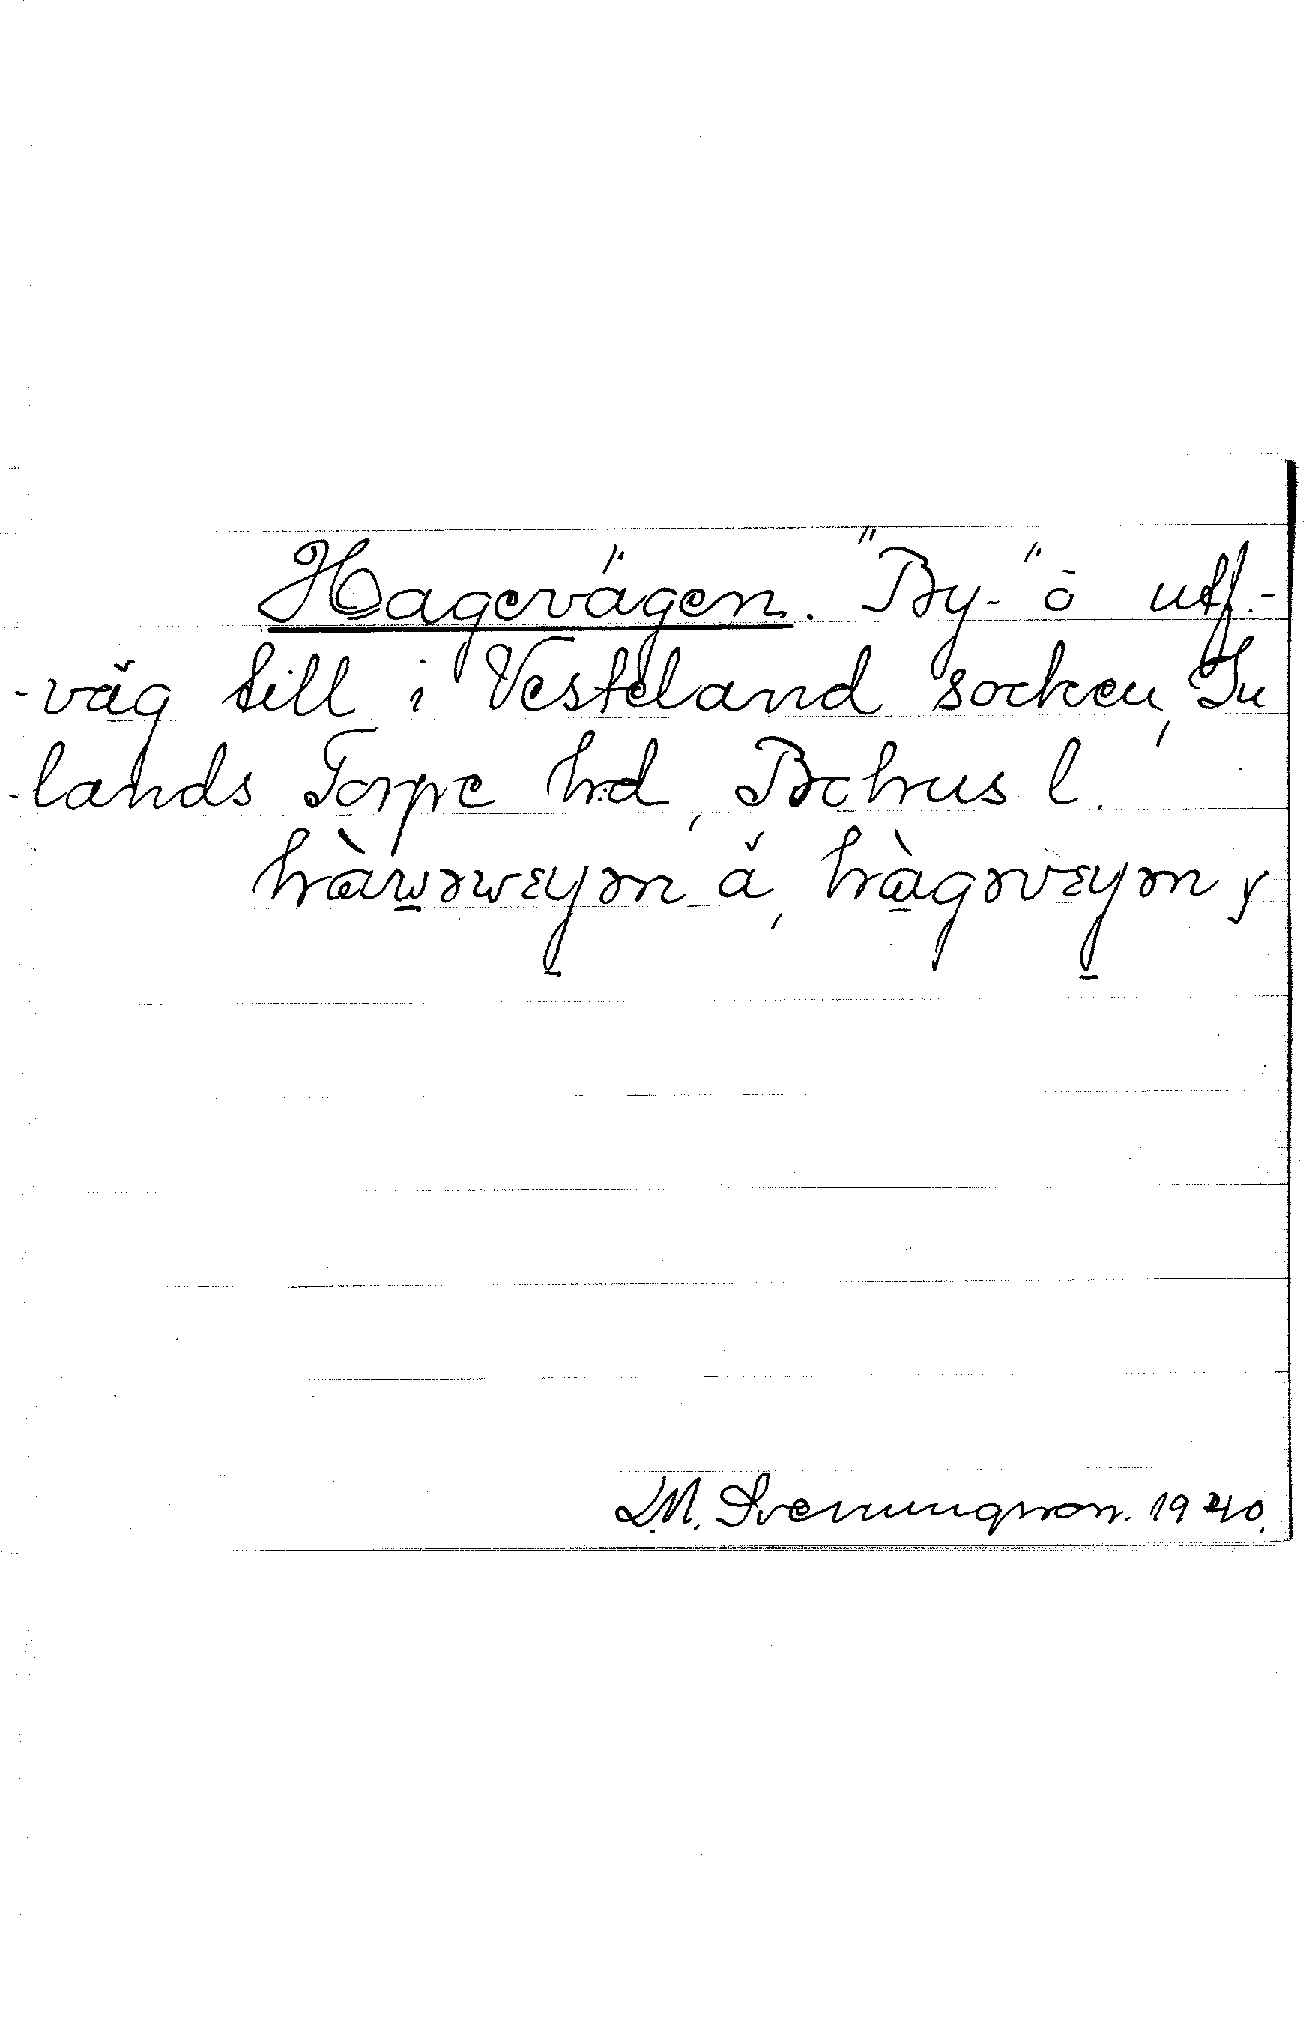 Hagevägen. "By-" ö utf.-
-väg till i Vesteland socken, In
-lands Torpe hrd, Bohus l.
hàwəwɛyən å, hàgəvɛyən y
L.M. Svenungson. 1940.